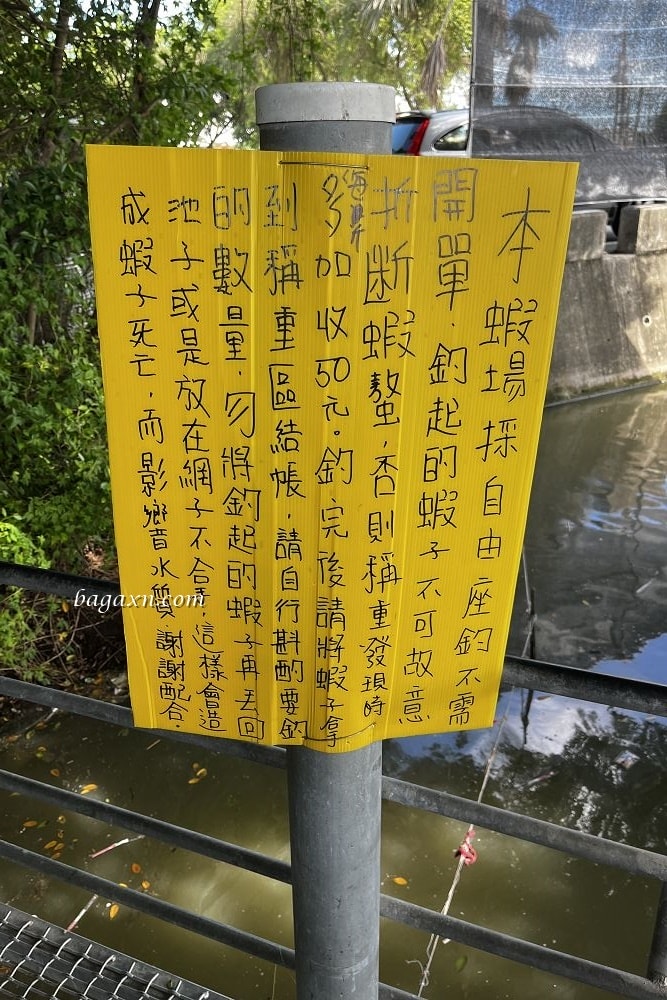 本蝦場採自由座釣不需
開單.釣起的蝦子不可故意
折断蝦螯,否則稱重發現時
每隻
多加收50元。釣完後請將蝦子拿
到稱重區結帳.請自行斟酌要釣
的數量,勿將釣起的蝦子再丟回
池子或是放在網子不拿,這樣會造
成蝦子死亡.而影響水質謝謝配合.
bagaxn.com